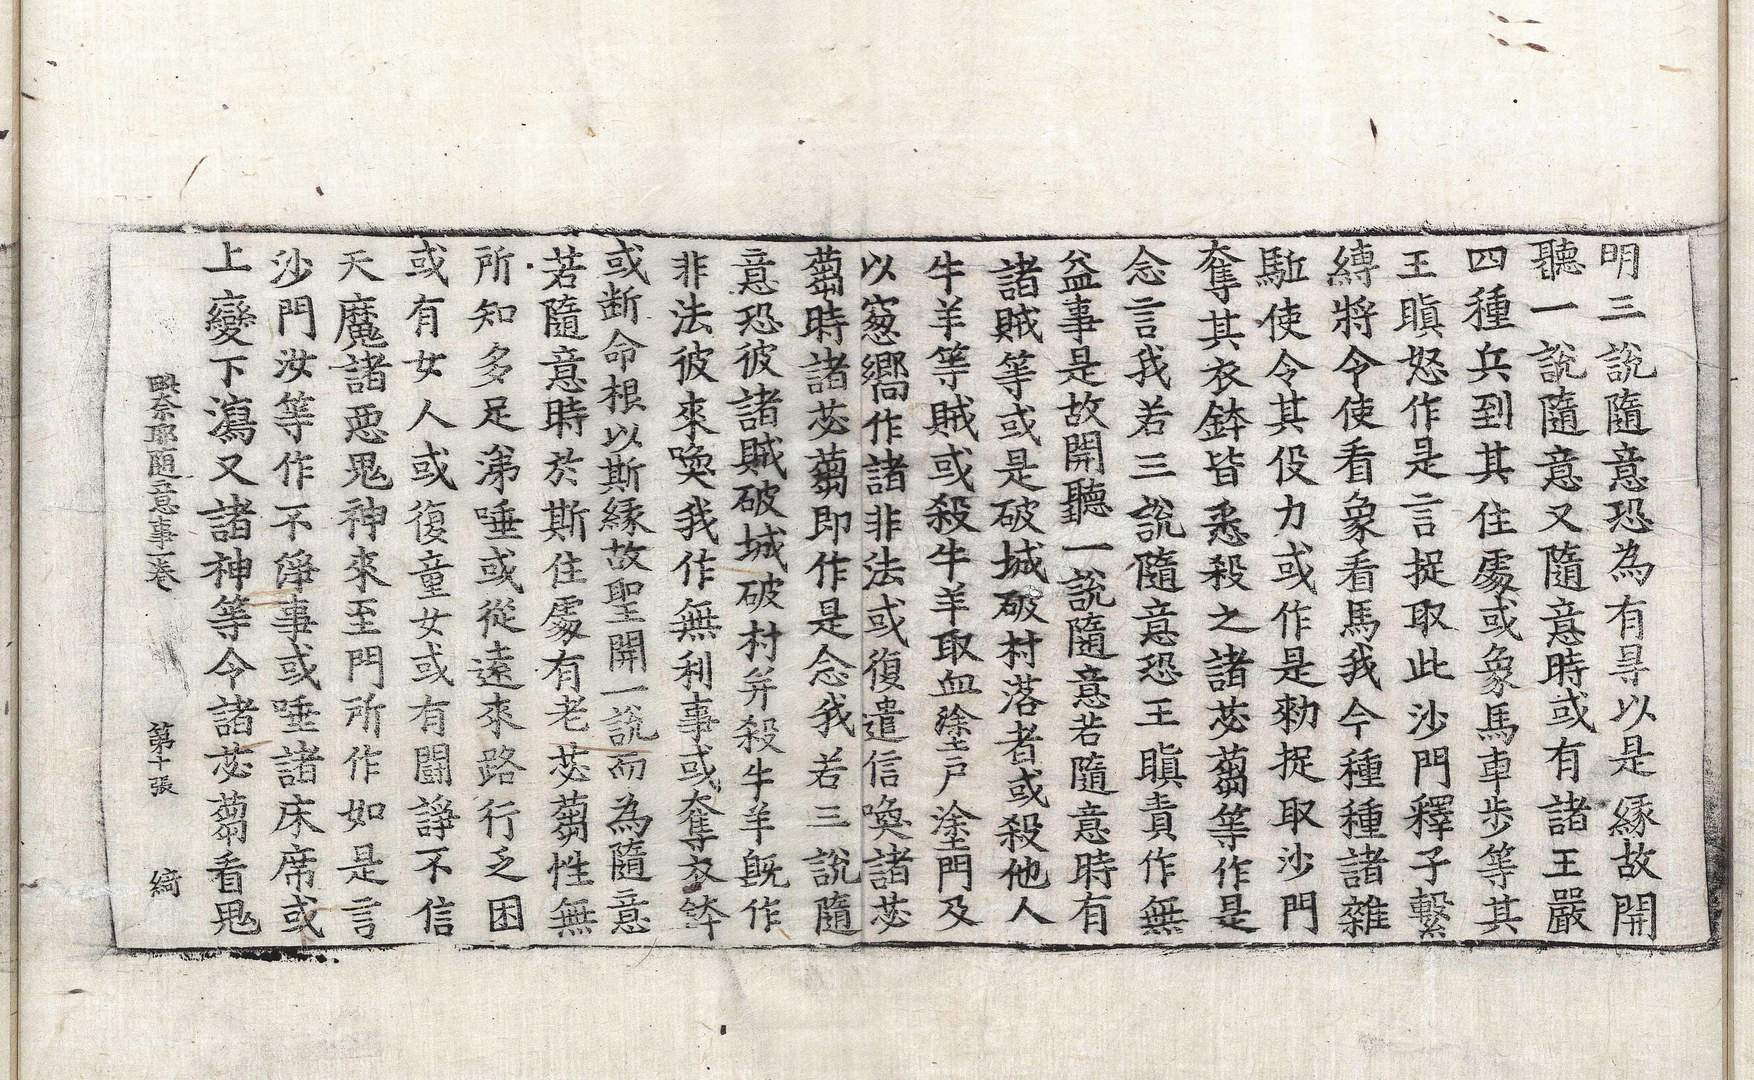 明三說隨意恐為有㝵以是緣故開
聽一說隨意又隨意時或有諸王嚴
四種兵到其住處或象馬車步等其
王瞋怒作是言捉取此沙門釋子繫
縛將令使看象看馬我今種種諸雜
駈使令其伇力或作是勑捉取沙門
奪其衣鉢皆悉殺之諸苾蒭等作是
念言我若三說隨意恐王瞋責作無
益事是故開聽一說隨意若隨意時有
諸賊等或是破城破村落者或殺他人
牛羊等賊或殺牛羊取血塗戶塗門及
以窓嚮作諸非法或復遣信喚諸苾
蒭時諸苾蒭即作是念我若三說隨
意恐彼諸賊破城破村并殺牛羊旣作
非法彼來喚我作無利事或奪衣鉢
或断命根以斯緣故聖開一說而為隨意
若隨意時於斯住處有老苾蒭性無
所知多足涕唾或從遠來路行乏困
或有女人或復童女或有鬪諍不信
天魔諸惡鬼神來至門所作如是言
沙門汝等作不淨事或唾諸床席或
上變下瀉又諸神等令諸苾蒭看鬼
毗奈耶隨意事一卷 第十張 綺